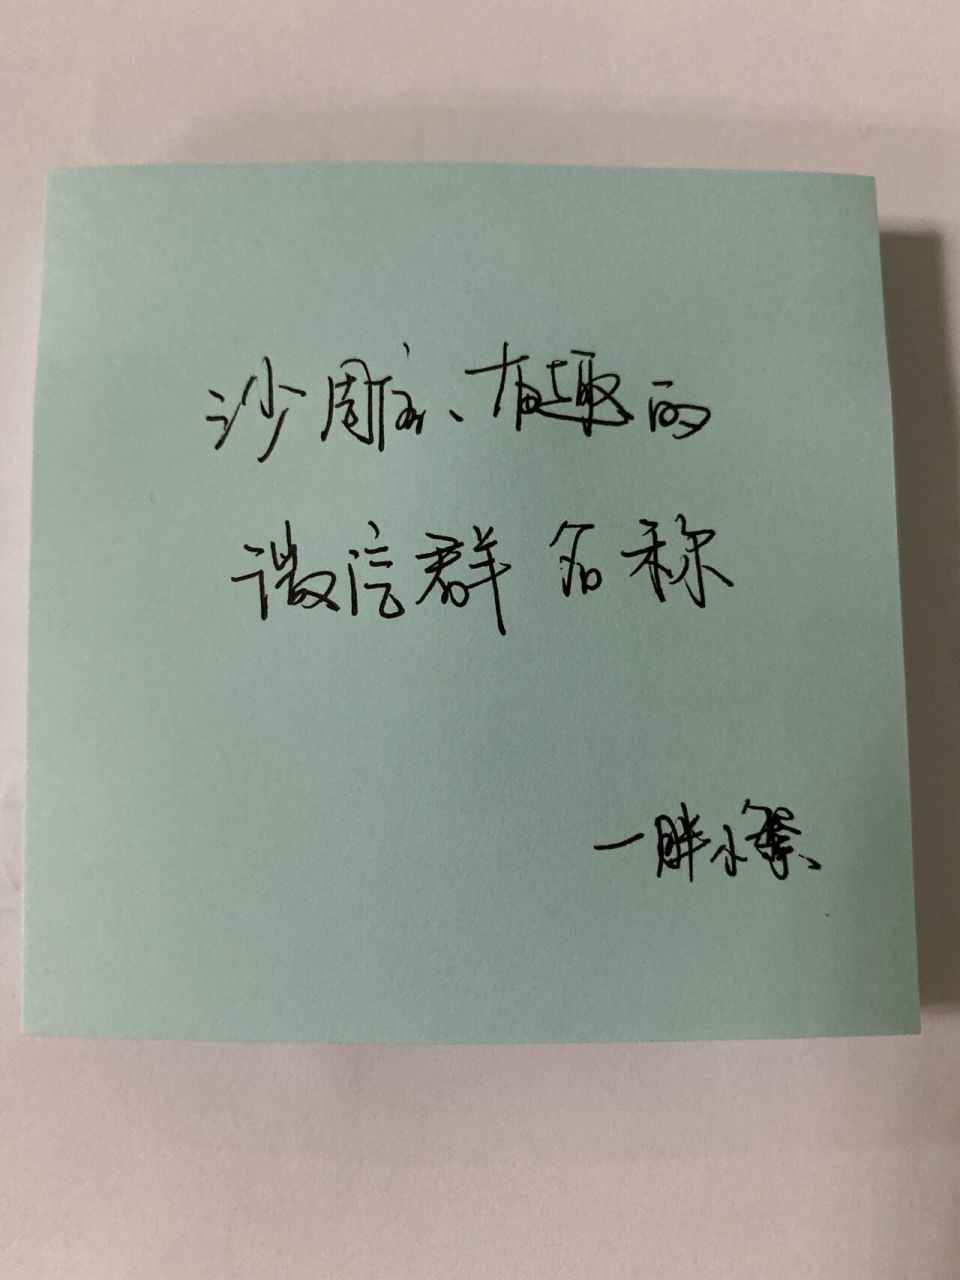 沙雕、有趣的
微信群名称
一胖小